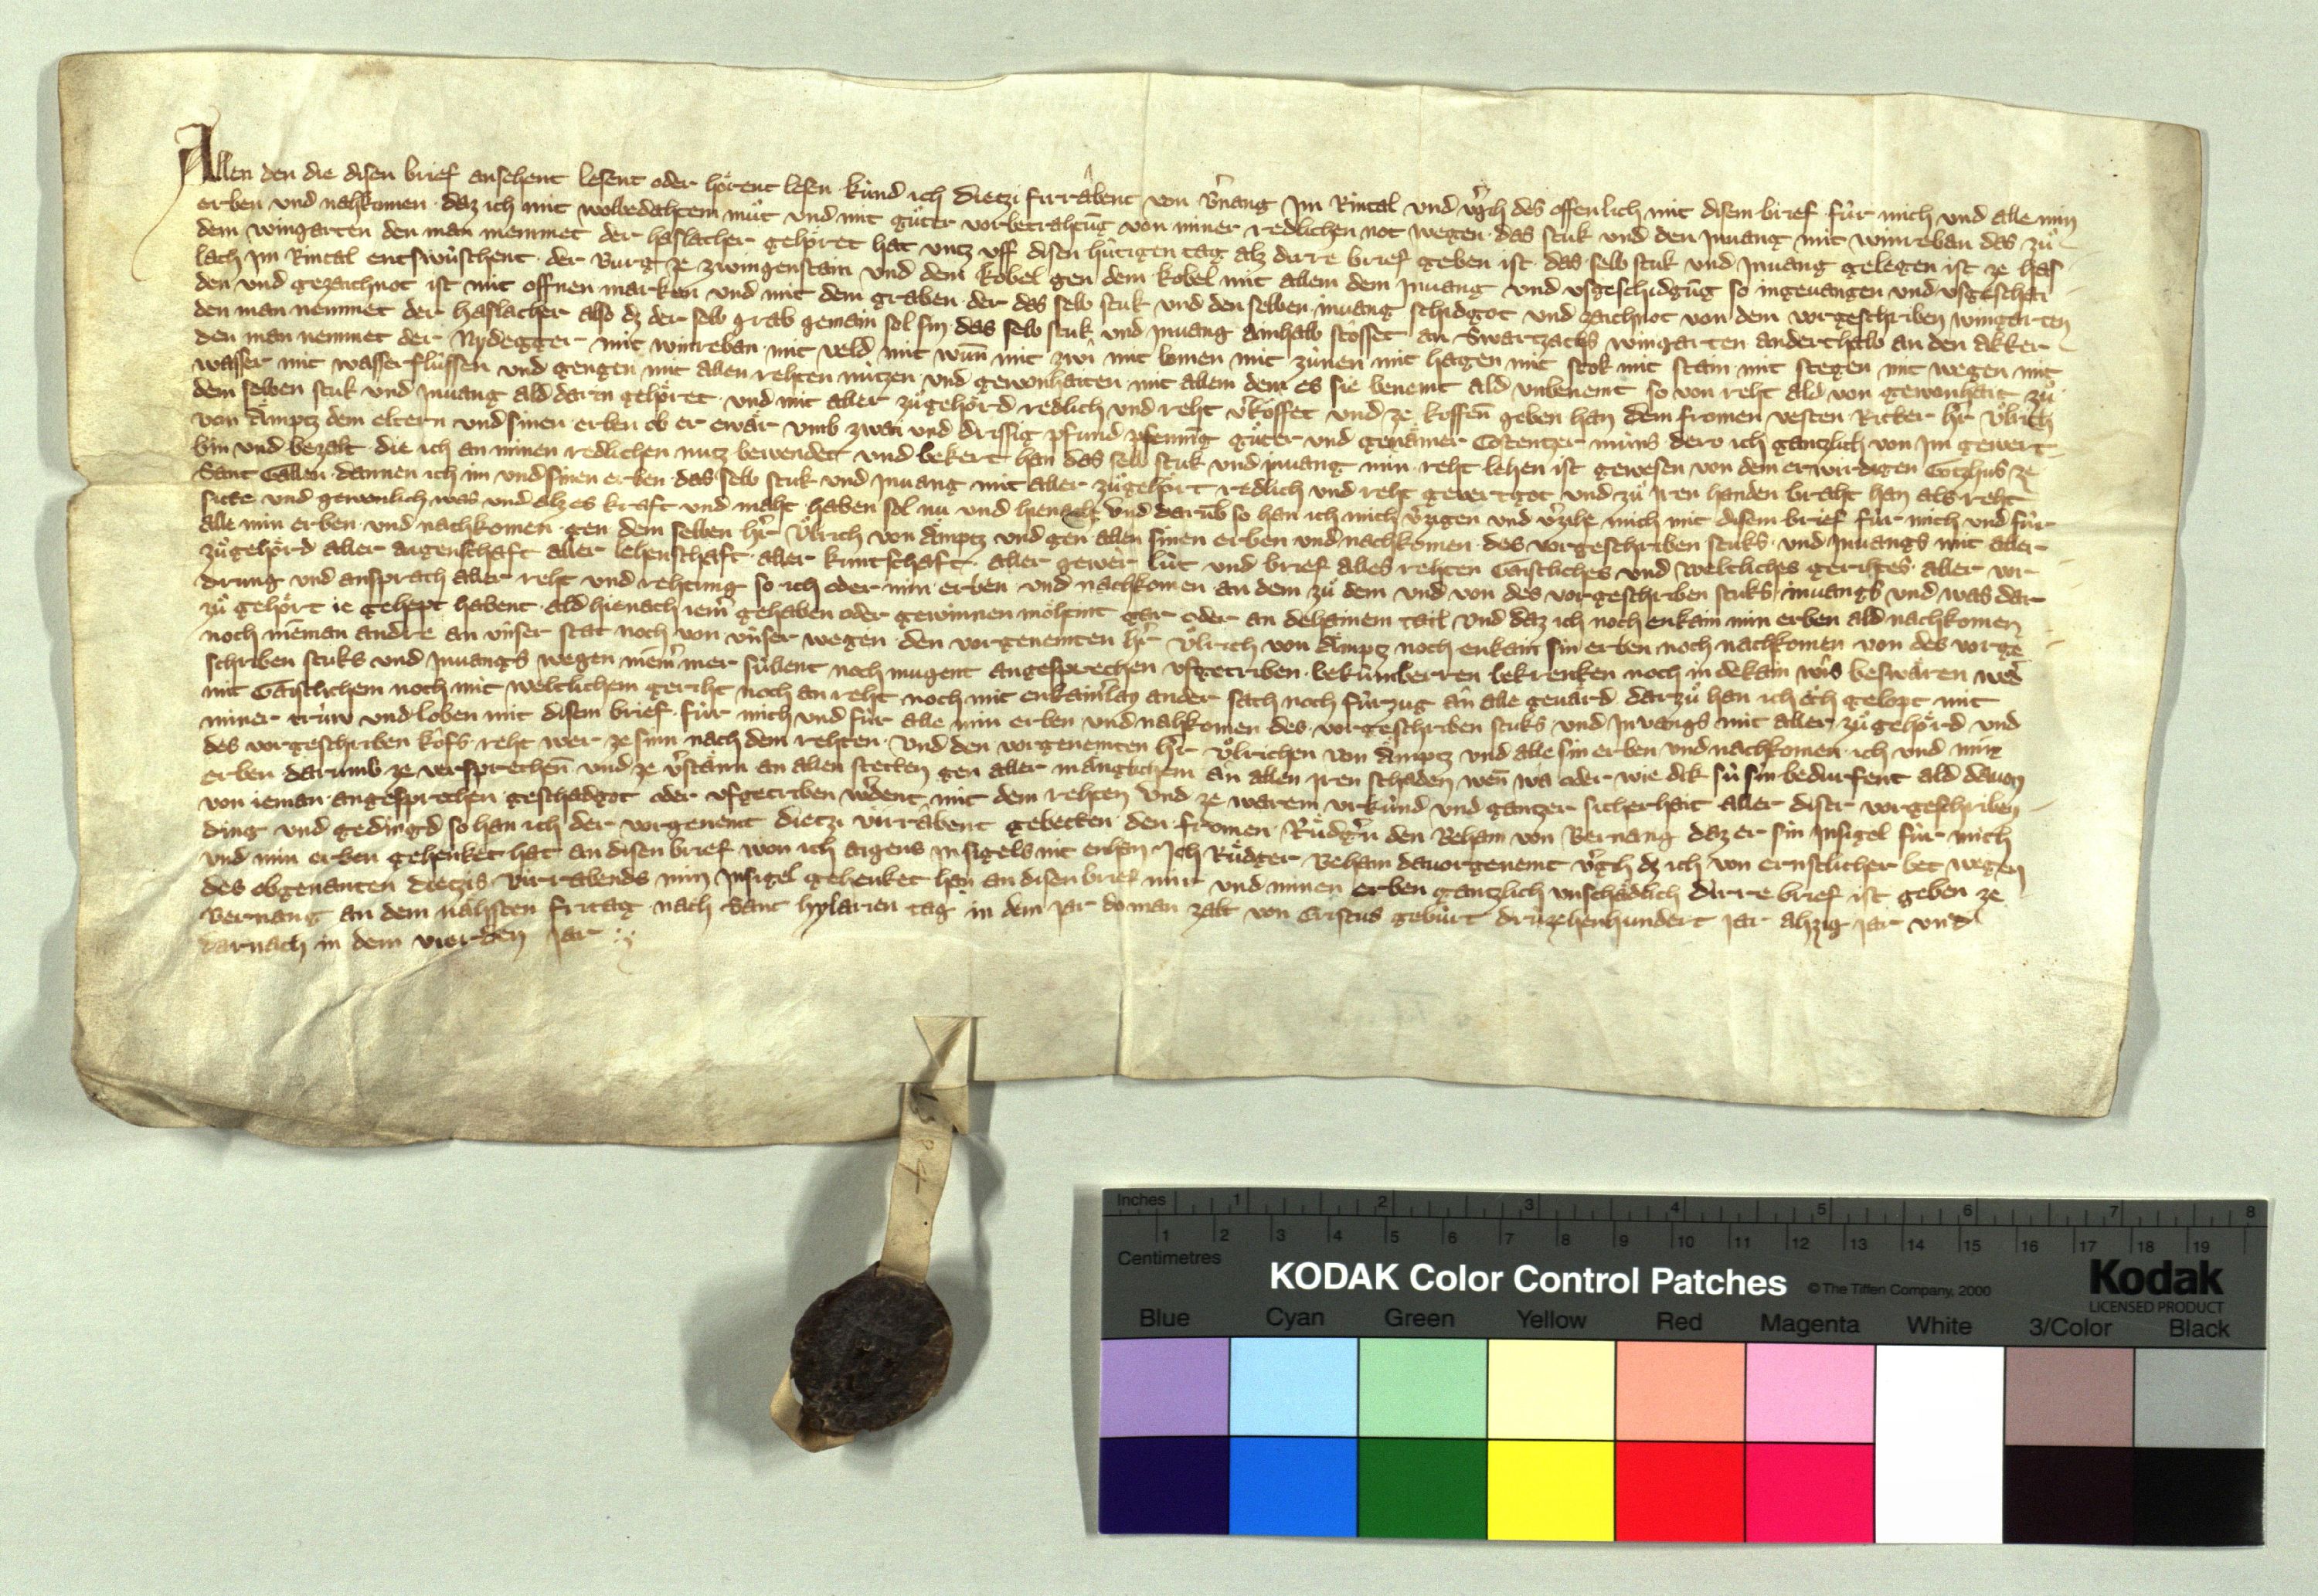 Allen den die disen brief ansehent lesent oder hörent lesen · kúnd ich Dietzi firrabent von Bnang Im Rintal und vgich des offenlich mit disem brief · fúr mich und alle min
erben und nahkomen · daz ich mit wolbedahtem můt und mit gůter vorbetrahtūg von miner redlichen not wegen · das stuk und den Inuang mit winreban das zů
dem wingarten den man nemmet der haslacher gehöret hat untz uff disen hútigen tag alz dirre brief geben ist · das selb stuk und Inuang gelegen ist ze has
lach Im Rintal entswúschent · der Burg ze zwingenstain und dem kobel gen dem kobel mit allem dem Inuang und usgeschidgūg so ingeuangen und usgeschai
den und gezaichnot ist mit offnen marken und mit dem graben · der das selb stuk und den selben inuang schidgot und zaichnot von dem vorgeschriben wingarten
den man nemmet der haslacher also dz der selb grab gemain sol sin das selb stuk und Inuang ainhalb stosset an Swartzachs wingarten anderthalb an den akker
den man nemmet der Nydegger mit winreban · mit veld mit wūn mit zwi mit bomen mit zúnen mit hagen mit stok mit stain mit stegen mit wegen mit
wasser mit wasserflússen und gengen mit allen rehten nutzen und gewonhaiten mit allem dem es sie benemt ald unbenemt so von reht ald von gewonhait zů
dem selben stuk und Inuang ald darin gehöret · und mit aller zůgehörd redlich und reht vkoffet und ze koffen geben han dem fromen vesten Ritter hr Ůlrich
von Ämptz dem eltern und sinen erben ob er enwär umb zwai und drissig pfund pfennīg gůter und genämer Costentzer múns dero ich gantzlich von Im gewert
bin und bezalt · die ich an minen redlichen nutz bewendet und bekert han das selb stuk und inuang min reht lehen ist gewesen von dem erwirdigen Gotzhus ze
Sant Gallen · dannen ich im und sinen erben · das selb stuk und Inuang mit aller zůgehört redlich und reht geuertgot und zů Iren handen braht han als reht
sitte und gewonlich was und alz es kraft und maht haben sol nu und hienach und darūb so han ich mich vzigen und vzihe mich mit disem brief fúr mich und fúr
alle min erben · und nachkomen · gen dem selben hr Ůlrich von Ämptz und gen allen sinen erben und nachkomen · des vorgeschriben stuks · und Inuangs mit aller
zůgehörd aller aigenschaft aller lehenschaft · aller kuntschaft · aller gewer lút und brief alles rehten Gaistliches und weltliches gerihtes · aller vor
drung und ansprach aller reht und rehtung so ich oder min erben · und nachkomen an dem zů dem und von des vorgeschriben stuks · inuangs und was dar
zů gehört ie gehept habent · ald hienach iem gehaben oder gewinnen möhtint gar oder an dehainem tail und daz ich noch enkain min erben ald nachkomen
noch nieman andre an únser stat noch von únser wegen · den vorgenemten hr Ůlrich von Ämptz noch enkain sin erben noch nachkomen von des vorge
schriben stuks und Inuangs wegen niemmer súllent noch mugent angesprechen ufgetriben · bekúmberren bekrenken noch in dekain wis beswären wed
mit Gaistlichem noch mit weltlichem geriht noch an reht noch mit enkainlay ander sach noch fúrzug än alle geuärd darzů han ich öch gelopt mit
miner trúw und loben mit disem brief · fúr mich und fúr alle min erben und nahkomen des vorgeschriben stuks und Inuangs mit aller zůgehörd und
des vorgeschriben kofs · reht wer ze sinn nach dem rehten · Und den vorgenemten hr Ůlrichen von Ämptz und alle sin erben und nachkomen · ich und min
erben darumb ze versprechen und ze vstänn an allen stetten gen aller mänglichem än allen Iren schaden wen wa oder wie dik sú sin bedurfent ald dauon
von ieman angesprochen geschadgot oder ufgetriben wdent mit dem rehten Und ze warem urkúnd und gantzer sicherhait aller diser vorgeschriben
ding und gedingd so han ich der vorgenemt Dietzi virrabent gebetten · den fromen · Růdgern den Beham von Bernang daz er sin Insigel fúr mich
und min erben gehenket hat an disen brief won ich aigens insigels nit enhan Ich Růdger Beham dauorgenemt vgih dz ich von ernstlicher bet wegen
des obgenanten Dietzis virrabends min Insigel gehenket han an disen brief mir und minen erben gantzlich unschädlich dirre brief ist geben ze
Bernang an dem nähsten fritag nach Sant hylarien tag in dem Jar do man zalt von Cristus gebúrt drúzehenhundert Jar ahzig Jar und
darnach in dem vierden Jar
Inches 1 2 3 4 5 6 7 8
1 2 3 4 5 6 7 8 9 10 11 12 13 14 15 16 17 18 19
Centimetres
KODAK Color Control Patches © The Tiffen Company, 2000 Kodak
LICENSED PRODUCT
Blue Cyan Green Yellow Red Magenta White 3/Color Black